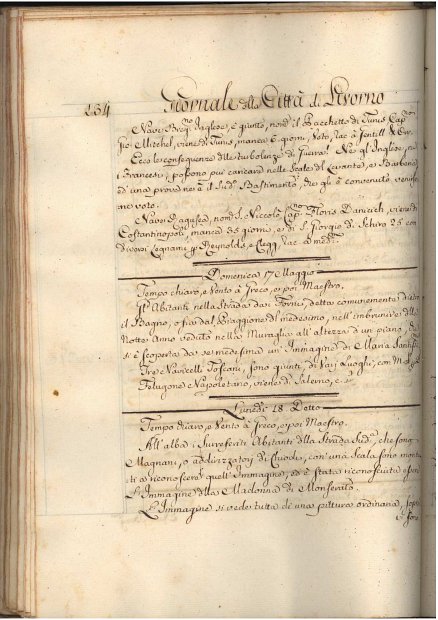 234 Giornale della Città di Livorno
Nave Inglese, è giunto, nom. il Pacchetto di Tunis Cap.
Gio: Mitchel, viene di Tunis, manca 6 giorni, Voto, rac. a
Ecco le conseguenze delle turbolenze di Guerra! Ne gl'Inglesi, ne
i Francesi, possono più caricare nelle Scale di Levante, e Barberia
ed una prova ne è il Sud. Bastimento che gli è convenuto venire
ne voto.
Nave Ragusea, nom. S. Niccolò Cap. Floris Danicich, viene di
Costantinopoli, manca 35 giorni, e di S. Giorgio di Schiro 25 con
diversi Legnami p. Reynolds, e Clegg, rac. a med.
Domenica 17 Maggio
Tempo chiaro, e Vento a Greco, e poi Maestro.
Gl'Abitanti nella Strada da' Forni, detta comunemente dietro
il Bagno, o sia dal Biaggione del medesimo, nell'imbrunire della
Notte anno veduto nella Muraglia all'altezza d'un piano, che
si è scoperta da se medesima un Immagine di Maria Santiss.
Tre Navicelli Toscani, sono giunti, di Varj Luoghi, con M.
Felugone Napoletano, viene di Salerno, e s.
Lunedì 18 Detto
Tempo chiaro, e Vento a Greco, e poi Maestro.
All'alba i surreferiti Abitanti della Strada Sud. che sono
Magnani, o addirizzatorj di Chiodi, con una Scala sono monta
ti a riconoscere quell'Immagine, ed è stata riconosciuta essere
L'Immagine della Madonna di Monserrato.
L'Immagine si vede tutta di una pittura ordinaria, sopra